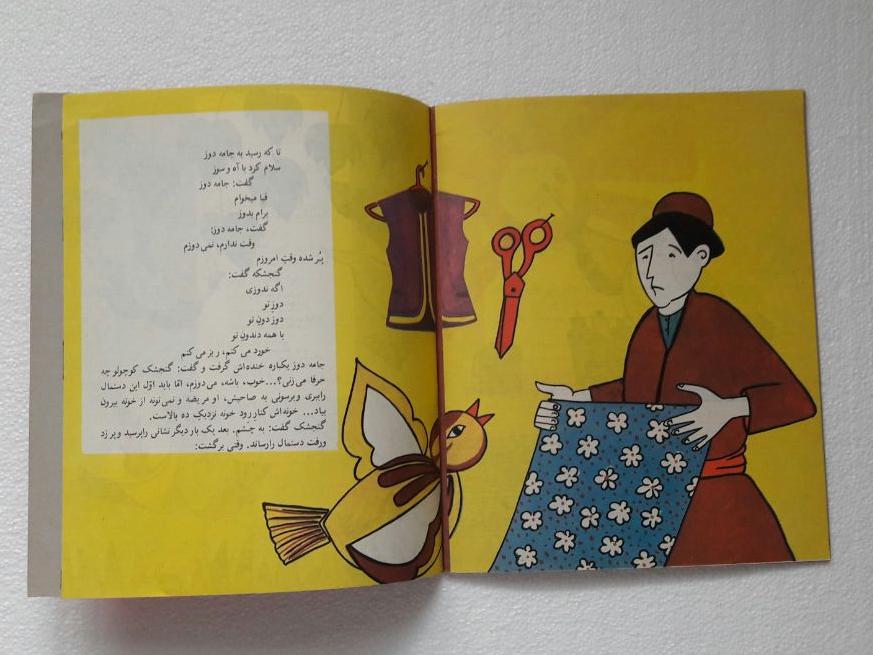 تا که رسید به جامه دوز
سلام کرد با آه و سوز
گفت: جامه دوز
قبا میخوام
برام بدوز
گفت، جامه دوز:
وقت ندارم، نمی دوزم
پُر شده وقتِ امروزم
گنجشکه گفت:
اگه ندوزی
دوزِ تو
دوز دونِ تو
با همه دندونِ تو
خورد می کنم، ریز می کنم
جامه دوز یکباره خنده‌اش گرفت و گفت: گنجشک کوچولو چه
حرفا می زنی؟... خوب، باشه، می دوزم، امّا باید اوّل این دستمال
راببری و برسونی به صاحبش، او مریضه و نمی تونه از خونه بیرون
بیاد... خونه‌اش کنار رود خونه نزدیک ده بالاست.
گنجشک گفت: به چَشم. بعد یک بار دیگر نشانی را پرسید و پر زد
ورفت دستمال را رساند. وقتی برگشت: